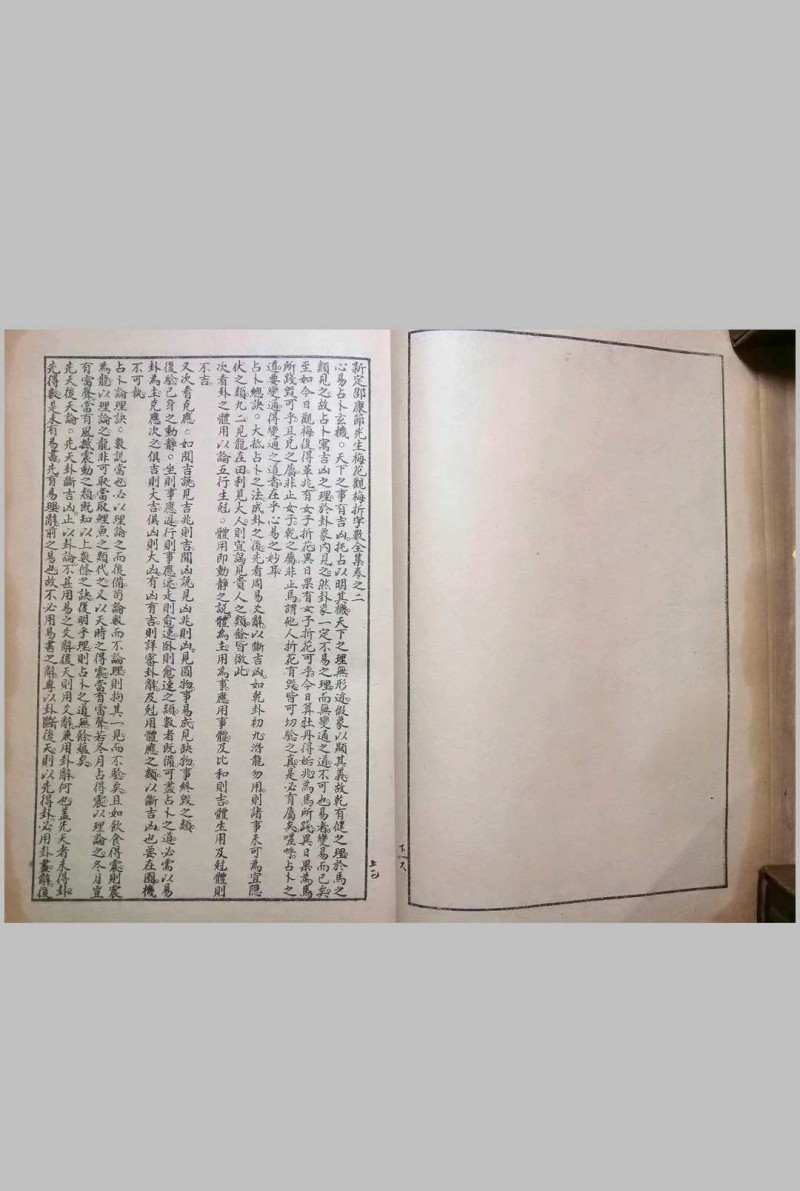 新定邵康節先生梅花觀梅折字數全集卷之二
心易占卜玄機。天下之事有吉凶托占以明其機天下之理無形迹假象以顯其義故乾有健之理於馬之
類見之故占卜寓吉凶之理於卦象內見之然卦象一定不易之理而無變通之道不可也易者變易而已矣
至如今日觀梅復得革兆有女子折花異日果有女子折花可乎今日算牡丹得姤兆為馬所踐異日果為馬
所踐毀可乎且兌之屬非止女子乾之屬非止馬謂他人折花有毀皆可切驗之真是必有屬矣嗟呼占卜之
道要變通得變通之道者在乎心易之妙耳
占卜總訣。大抵占卜之法成卦之後先看周易爻辭以斷吉凶如乾卦初九潛龍勿用則諸事未可為宜隱
伏之類九二見龍在田利見大人則宜謁見貴人之類餘皆倣此
次看卦之體用以論五行生尅。體用即動靜之說體為主用為事應用事體及比和則吉體生用及尅體則
不吉
又次看克應。如聞吉說見吉兆則吉聞凶說見凶兆則凶見圓物事易成見缺物事終毀之類
復驗己身之動靜。坐則事應遲行則事應速走則愈速卧則愈遲之類數者既備可盡占卜之道必需以易
卦為主克應次之俱吉則大吉俱凶則大凶有凶有吉則詳審卦辭及尅用體應之類以斷吉凶也要在圓機
不可執
占卜論理訣。數說當也必以理論之而後備苟論數而不論理則拘其一見而不驗矣且如飲食得震則震
為龍以理論之龍非可取當取鯉魚之類代之又以天時之得震當有雷聲若冬月占得震以理論之冬月豈
有雷聲當有風撼震動之類既知以上數條之訣復明乎理則占卜之道無餘蘊矣
先天後天論。先天卦斷吉凶止以卦論不甚用易之爻辭後天則用爻辭兼用卦辭何也蓋先天者未得卦
先得數是未有易書先有易理辭前之易也故不必用易書之辭專以卦斷後天則以先得卦必用卦畫辭後